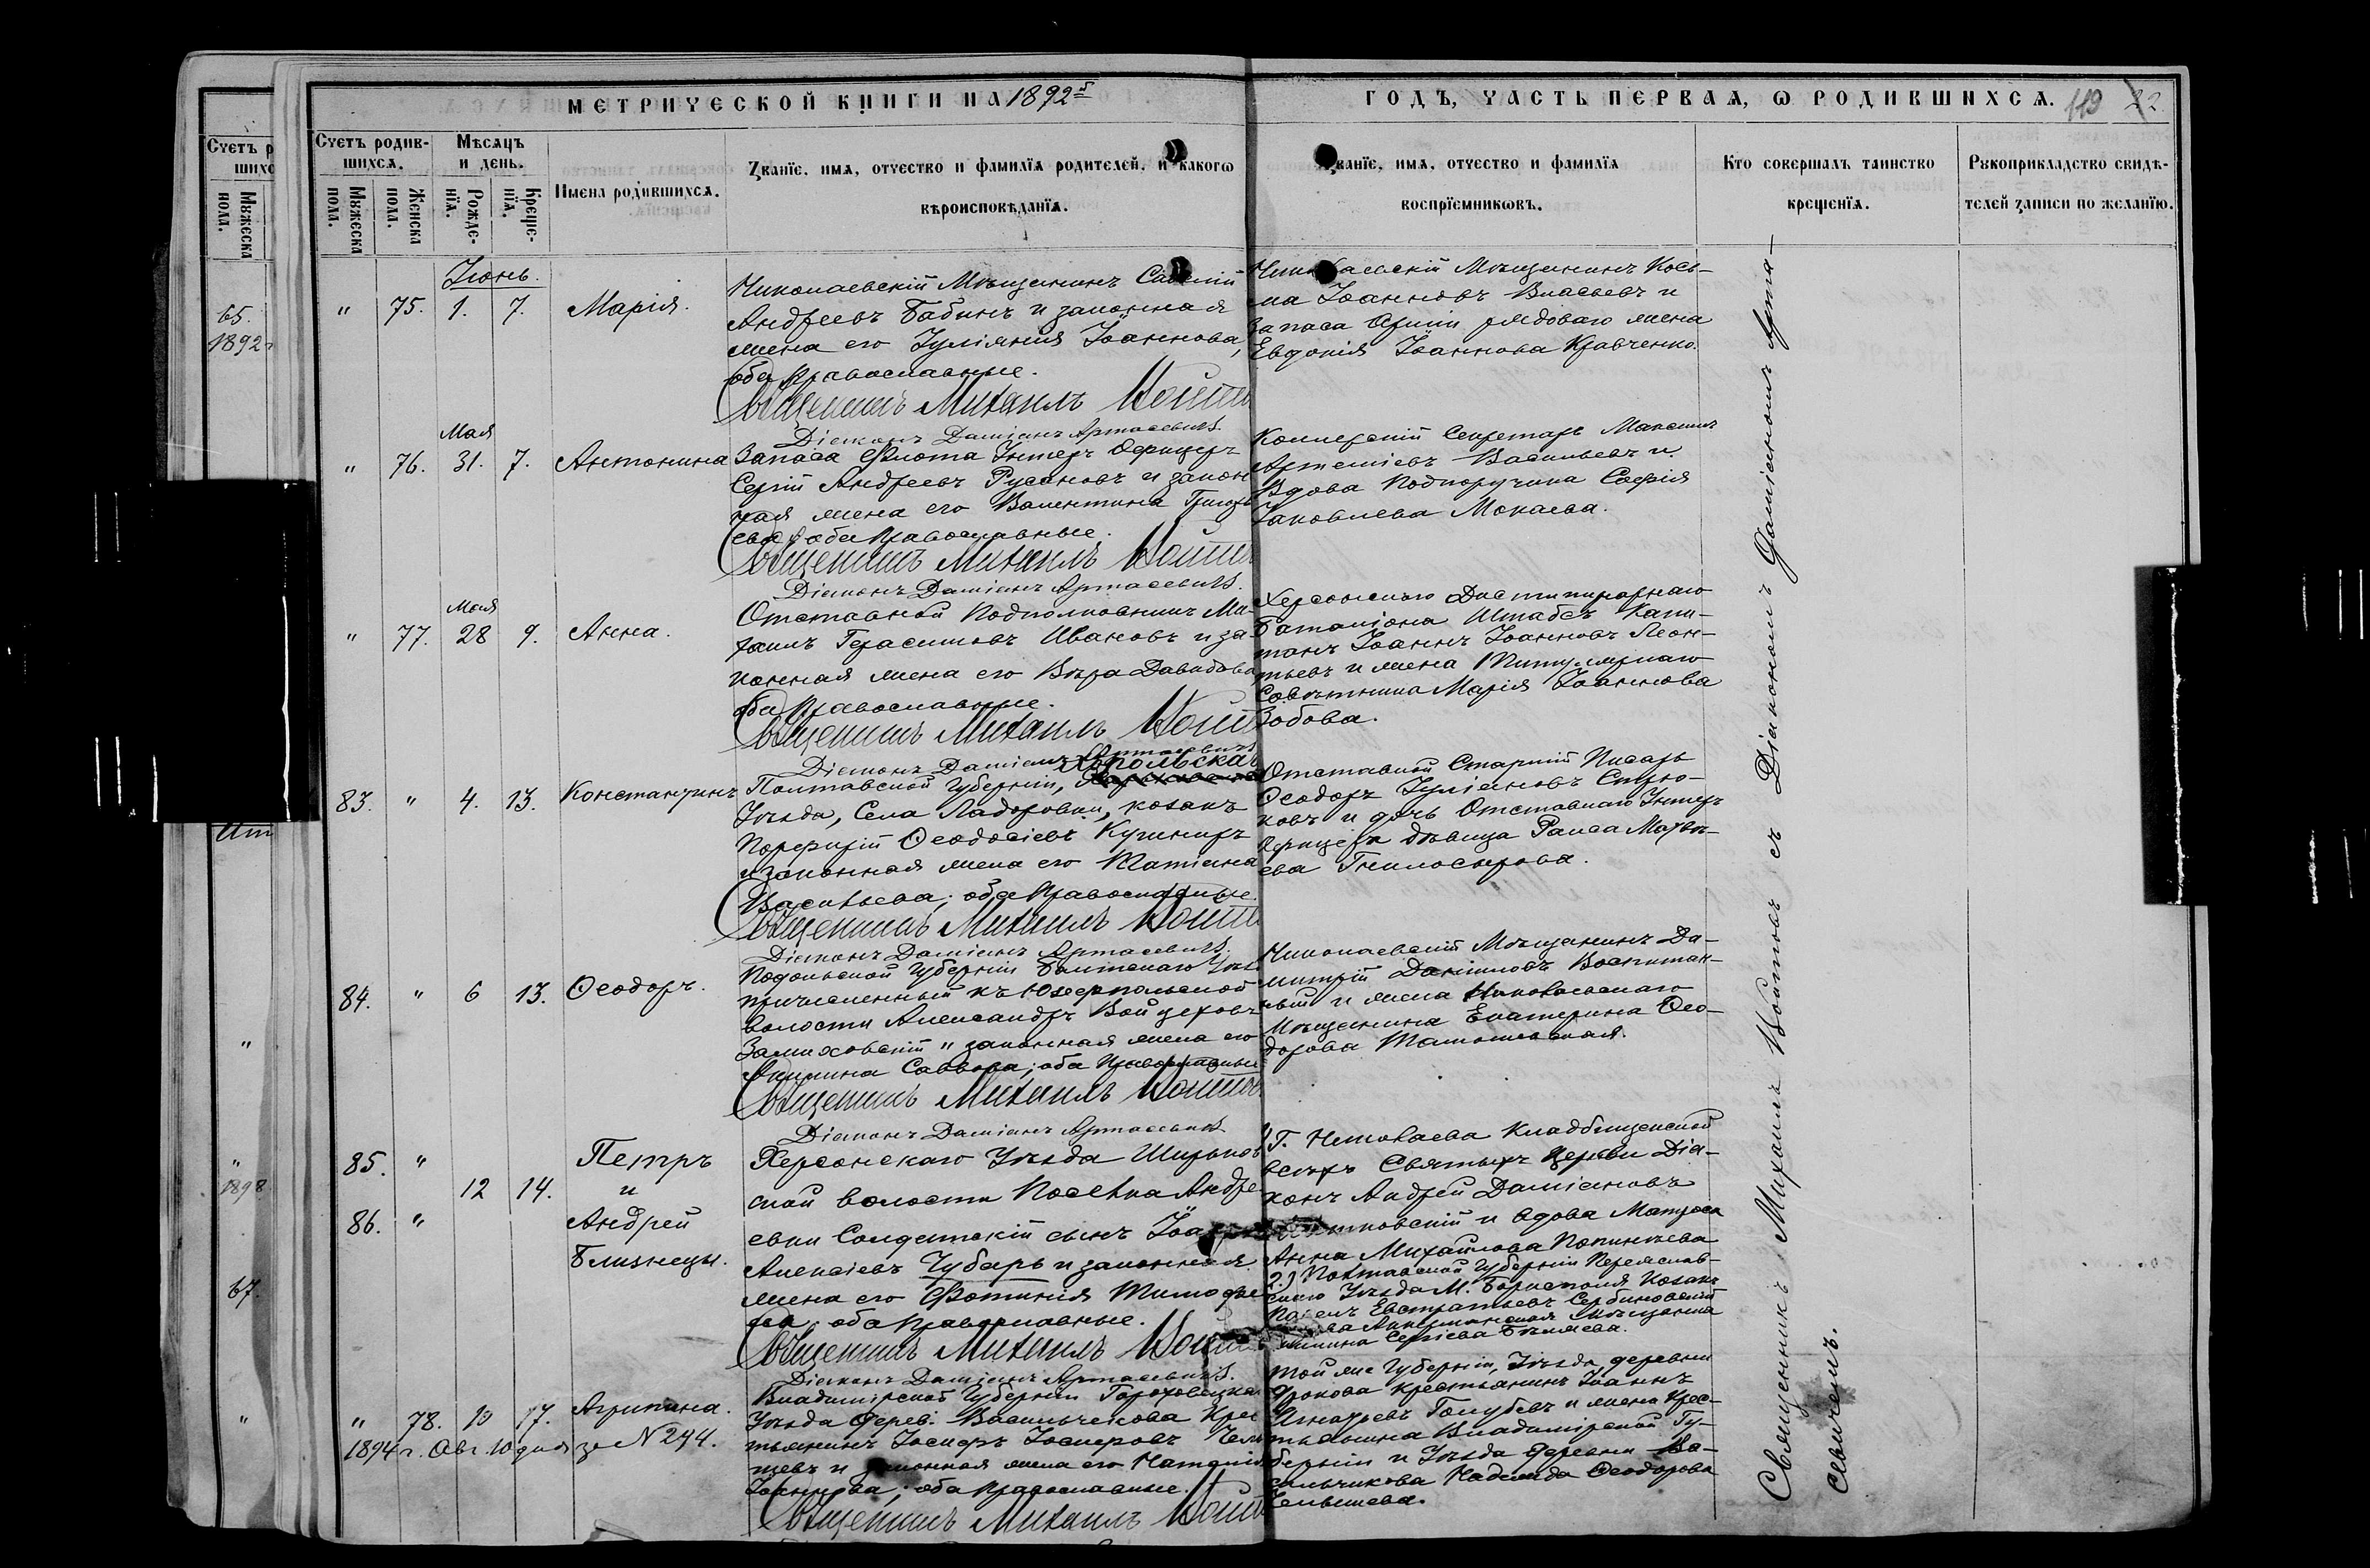 МЕТРИЧЕСКОЙ КНИГИ НА 1892й
ГОДЪ, ЧАСТЬ ПЕРВАѦ, Ѡ РОДИВШИХСѦ. 119 22.
Счетъ родив-
шихсѧ.
Мѣсѧцъ
и день.
Имена родившихсѧ.
Мꙋжеска
пола.
Женска
пола.
Рожде-
нїѧ.
Креще-
нїѧ.
Званїе, имѧ, отчество и фамилїѧ родителей, и какогѡ
вѣроисповѣданїѧ.
Званїе, имѧ, отчество и фамилїѧ
воспрїемникѡвъ.
Кто совершалъ таинство
крещенїѧ.
Рꙋкоприкладство свидѣ-
телей записи по желанїю.
Іюнь.
" 75. 1. 7. Марія.
Николаевскій Мѣщанинъ
Андреевъ Бабинъ и законная
жена его Іуліянія Іоаннова,
оба Православные.
Священникъ Михаилъ
Діяконъ Даміанъ Артасевичъ.
Николаевскій Мѣщанинъ Кось-
ма Іоанновъ Власьевъ и
Запаса Арміи рядоваго жена
Евдокія Іоаннова Кравченко.
Мая
" 76. 31. 7. Антонина
Запаса Флота Унтеръ Офицеръ
Сергій Андреевъ Русановъ и закон
ная жена его Валентина Григорь
ева, оба Православные.
Священникъ Михаилъ
Діяконъ Даміанъ Артасевичъ.
Коллежскій Секретарь Максимъ
Артеміевъ Васильевъ и
Вдова Подпоручика Софія
Іаковлева Мокаева.
Мая
" 77. 28 9. Анна.
Отставной Подполковникъ Ми-
хаилъ Герасимовъ Ивановъ и за-
конная жена его Вѣра Давидова
оба Православные.
Священникъ Михаилъ
Діяконъ Даміанъ Артасевичъ
Херсонскаго Дисциплинарнаго
Баталіона Штабсъ Капи-
танъ Іоаннъ Іоанновъ Леон-
тьевъ и жена Титулярнаго
Совѣтника Марія Іоаннова
Зобова.
83. " 4. 13. Константинъ
Полтавской Губерніи, Хорольскаго
Уѣзда, Села Ладоровки, козакъ
Порфирій Ѳеодосіевъ Кушниръ
и законная жена его Татіана
Васильева; оба Православные.
Священникъ Михаилъ
Діяконъ Даміанъ Артасевичъ.
Отставной Старшій Писарь
Ѳеодоръ Іуліановъ Стрю-
ковъ и дочь Отставнаго Унтеръ
Офицера дѣвица Раиса Матвѣ-
ева Гнилосырова.
84. " 6 13. Ѳеодоръ.
Подольской Губерніи Балтскаго Уѣз
причисленный къ Юзефпольской
волости Александръ Войцеховъ
Залиховскій и законная жена его
Акилина Саввова; оба Православные
Священникъ Михаилъ
Діяконъ Даміанъ Артасевичъ
Николаевскій Мѣщанинъ Ди-
митрій Даніиловъ Воспитан-
ный и жена Николаевскаго
Мѣщанина Екатерина Ѳео-
дорова
85. " Петръ
12 14. и
86. " Андрей
Близнецы.
Херсонскаго Уѣзда Широков
ской волости Поселка Андре
евки Солдатскій сынъ
Алексіевъ Чубарь и законная
жена его Фотинія Тимофее
ва, оба Православные.
Священникъ Михаилъ
Діяконъ Даміанъ Артасевичъ.
Г. Николаева Кладбищенской
всѣхъ Святыхъ Церкви Діа-
конъ Андрей Даміановъ
и вдова Матроса
Анна Михайлова
2.) Полтавской Губерніи Переяслав-
скаго Уѣзда М. Борисполя Козакъ
Павелъ Евстратьевъ Сербиновскій
Аккерманская Мѣщанка
Сергіева Бѣляева.
" 78. 10 17. Агрипина.
1894 г. Авг. 10 дня за № 244.
Владимірской Губерніи Гороховецка
Уѣзда Дерев. Васильчекова Крес
тьянинъ Іосифъ Іосифовъ
и законная жена его Наталія
Іоаннова; оба Православные.
Священникъ Михаилъ
Той же Губерніи, Уѣзда, деревни
крестьянинъ Іоаннъ
Игнатьевъ Голубевъ и жена Крес-
тьянина Владимірской Гу-
берніи и Уѣзда деревни Ва-
сильчикова Надежда Ѳеодорова
Священникъ Михаилъ съ Діакономъ Даміаномъ Арта-
севичемъ.
65.
1892
1898
67.